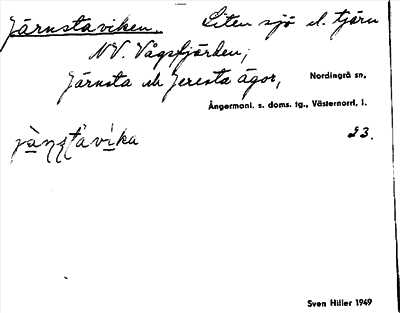 Järnstaviken. Liten sjö el. tjärn
NV. Vågsfjärden,
Järnsta och Jeresta ägor, Nordingrå sn,
Ångermanl. s. doms. tg., Västernorrl. l.
23.
Sven Hiller 1949